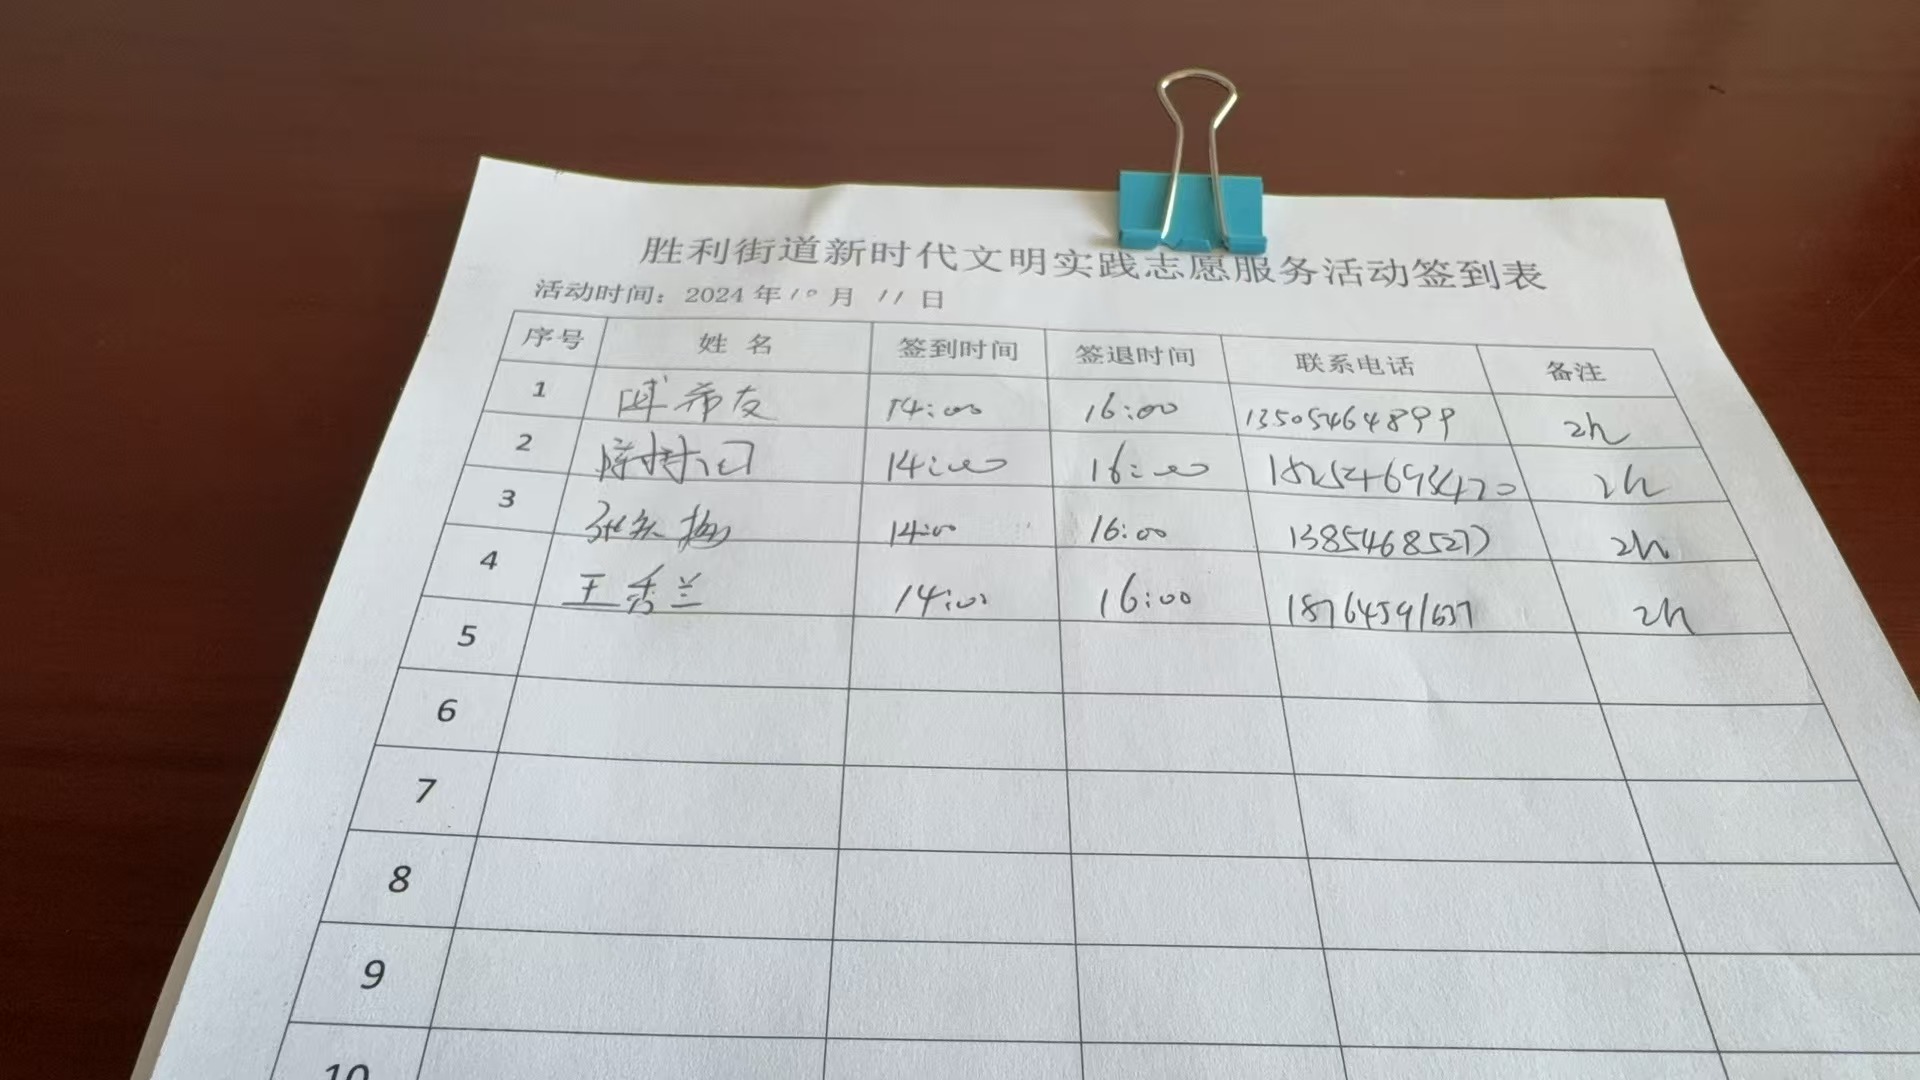 胜利街道新时代文明实践志愿服务活动签到表
活动时间：2024年10月11日
序号 姓名 签到时间 签退时间 联系电话 备注
1 希友 14:00 16:00 13505464899 2h
2 14:00 16:00 2h
3 14:00 16:00 13854685277 2h
4 王秀兰 14:00 16:00 18764591637 2h
5
6
7
8
9
10